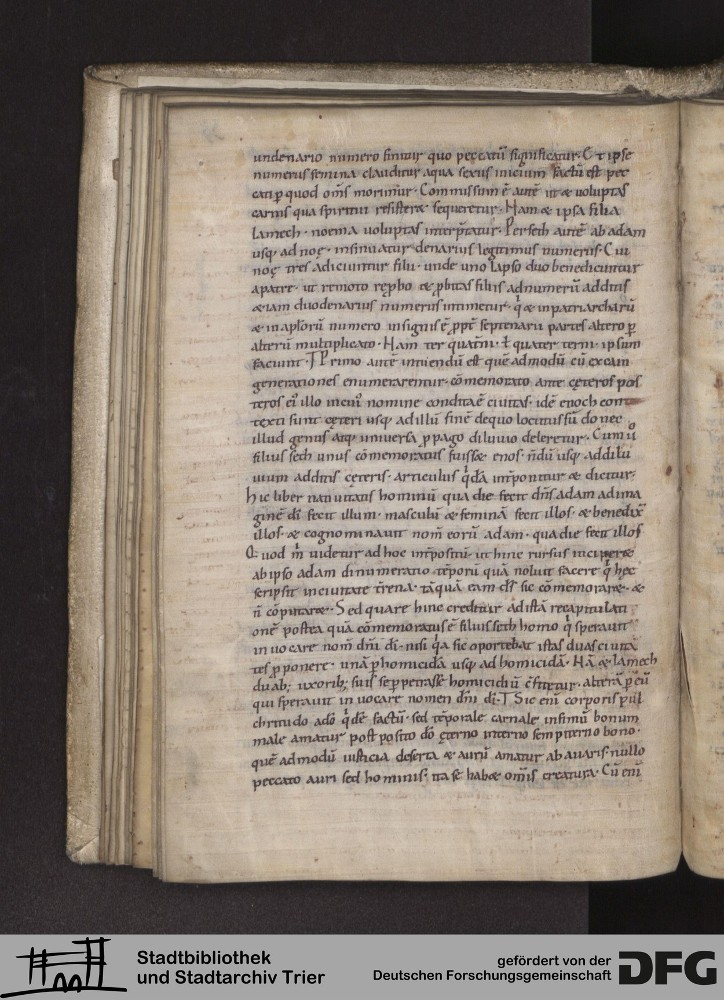 undenario numero finitur quo peccatū significatur. Et ipse
numerus femina clauditur a qua sexus inicium factū est pec
cati ꝑ quod om̄s morimur. Commissum ē autē ut & voluptas
carnis qua spiritui resister& sequeretur. Nam & ipsa filia
lamech. noema voluptas interp̄tatur. Per seth autē ab adam
usq; ad noę. insinuatur denarius legitimus numerus. Cui
noę tres adiciuntur filii. unde uno lapso duo benedicuntur
a patre. ut remoto reprobo & probatis filiis ad numerū additis
&iam duodenarius numerus intimetur. q̇ & in patriarcharū
& in aplorū numero insignis ē. ppt̄ septenarii partes alterā ꝑ
alterū multiplicato. Nam ter quatn̄i. ł quater terni. ipsum
faciunt. Primo autē intuendū est quē admodū cū ex cain
generationes enumerarentur. cōmemorato ante cęteros pos
teros ei' illo in cui' nomine condita ē civitas. idē enoch con
texti sunt cęteri usq; ad illū finē de quo locutus sū donec
illud genus atq; universa ꝓpago diluvio deleretur. Cum ů
filius seth unus cōmemoratus fuiss& enos. n̄dū usq; ad dilu
uium additis cęteris. articulus q̇dā int̄ponitur & dicitur;
hic liber nativitatis hominū qua die fecit dn̄s adam ad ima
ginē dī fecit illum. masculū & feminā fecit illos. & benedix̄
illos. & cognominavit nom̄ eorū adam. qua die fecit illos
Quod m̄ videtur ad hoc int̄positū ut hinc rursus inciperet
ab ipso adam dinumeratio tēporū quā noluit facere q̇ hęc
scripsit in civitate t̄rena. tāquā eam dī sic cōmemorar&. &
n̄ cōputar&. Sed quare hinc creditur ad istā recapitulati
onē postea quā cōmemoratus ē filius seth homo q̇ speravit
invocare nom̄ dn̄i dī. nisi q̇a sic oportebat istas duas civita
tes ꝓponere. unā ꝑ homicidā usq; ad homicidā. Nā & lamech
duab; uxorib; suis se perpetrasse homicidiū c̄fitetur. alterā ꝑ eū
qui speravit invocare nomen dn̄i dī. Sic eni corporis pul
chritudo a dō q̇dē factū. sed tēporale carnale infimū bonum
male amatur post posito dō ęterno interno sempiterno bono.
quē admodū iusticia deserta & aurū amatur ab avaris. nullo
peccato auri sed hominis. ita se hab& om̄is creatura. Cū eni
Stadtbibliothek
und Stadtarchiv Trier
gefördert von der
Deutschen Forschungsgemeinschaft
DFG